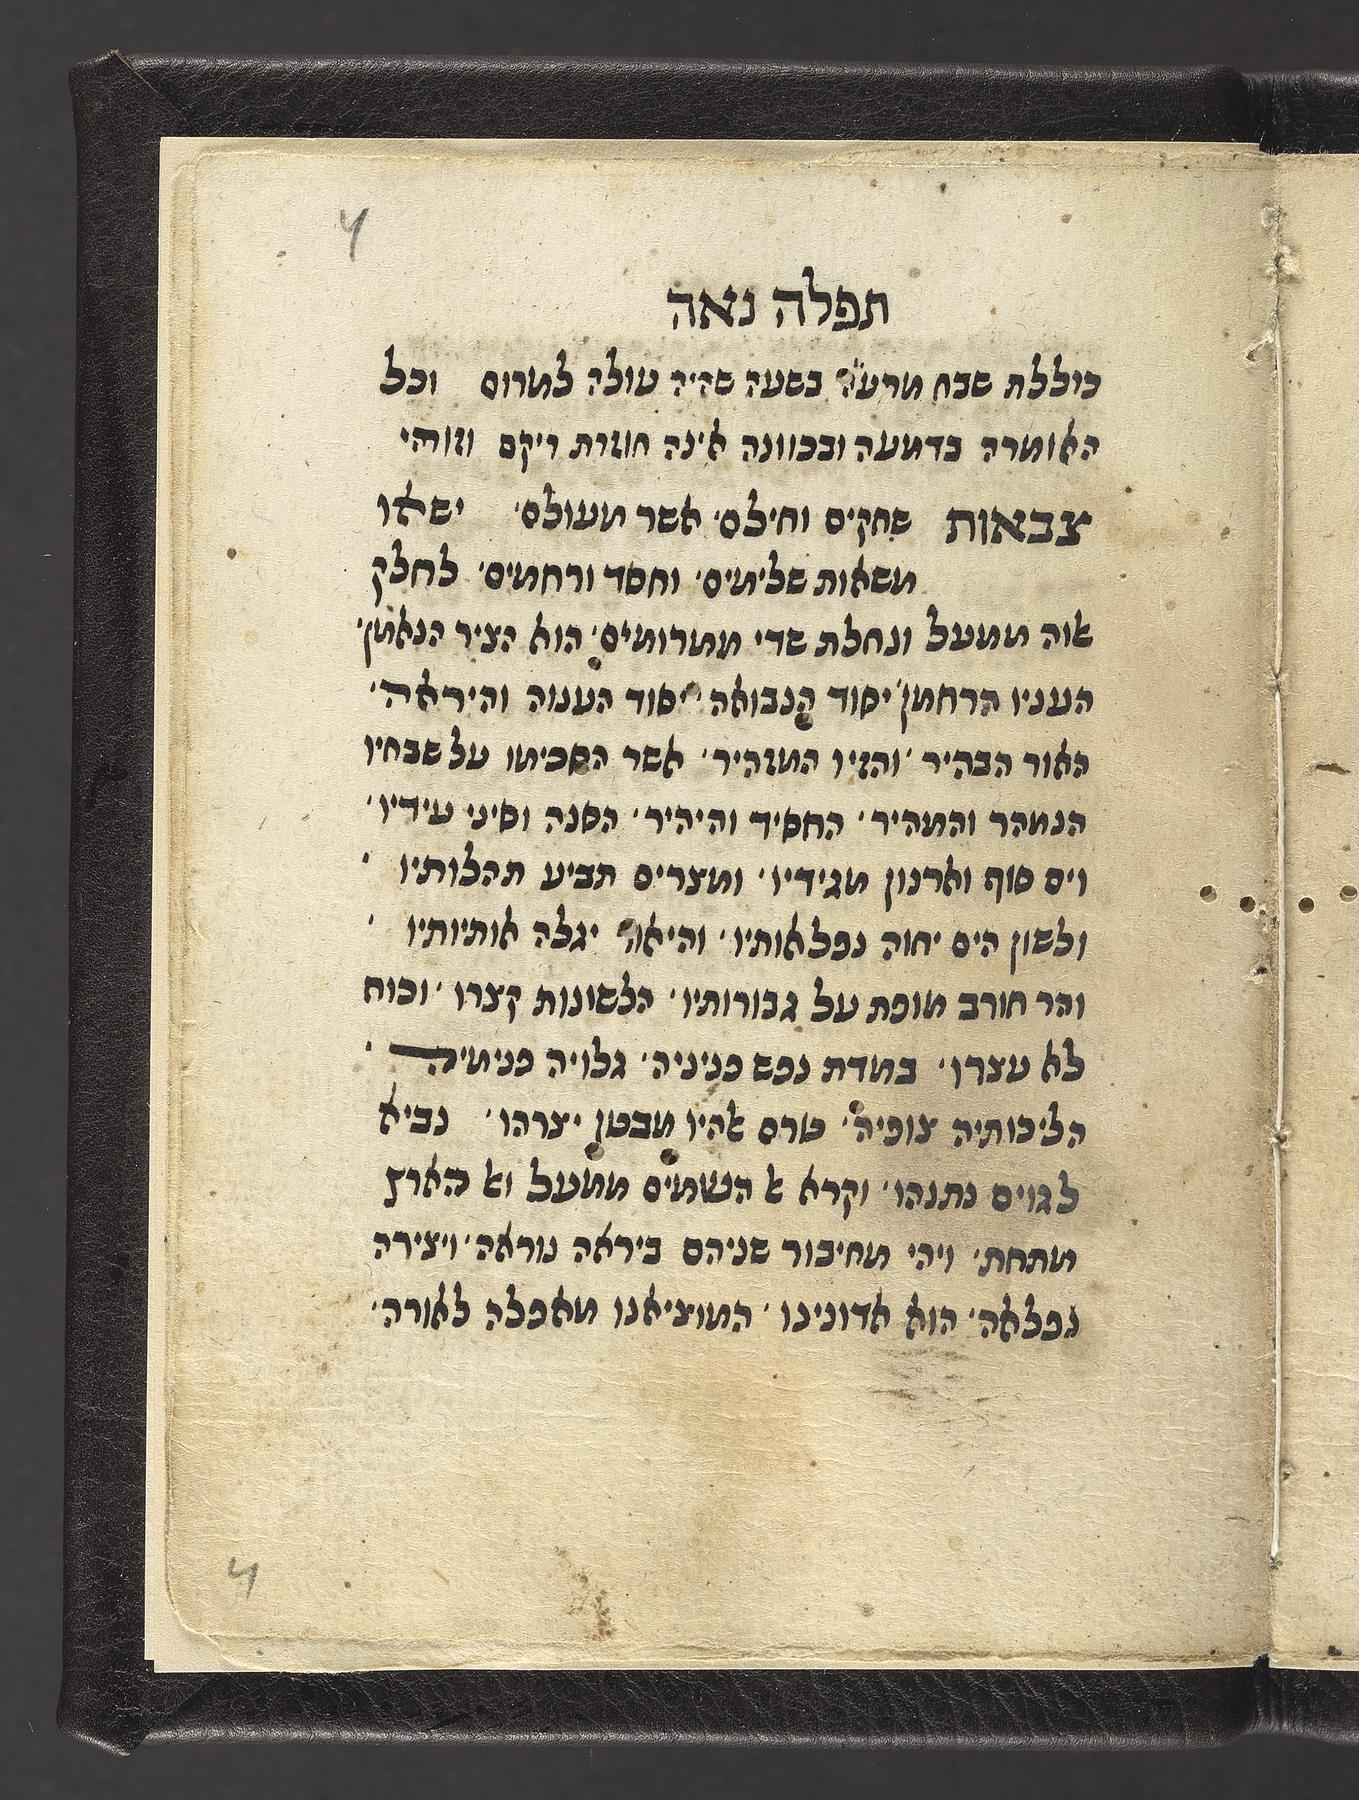 4
תפלה נאה
כוללת שבח מרע״ה בשעה שהיה עולה למרום וכל
האומרה בדמעה ובכוונה אינה חוזרת ריקם וזוהי
צבאות שחקים וחילם׳ אשר מעולם׳ ישאו
משאות שלימים׳ וחסד ורחמים׳ לחלק
אוה ממעל ונחלת שדי ממרומים׳ הוא הציר הנאמן׳
העניו הרחמן׳ יסוד הנבואה׳ יסוד הענוה והיראה׳
האור הבהיר׳ והזיו המזהיר׳ אשר הסכימו על שבחיו
הנמהר והמהיר׳ החסיד והיהיר׳ הסנה וסיני עידיו׳
וים סוף וארנון מגידיו׳ ומצרים תביע תהלותיו׳
ולשון הים יחוה נפלאותיו׳ והיאור יגלה אותיותיו׳
והר חורב מופת על גבורותיו׳ הלשונות קצרו׳ וכוח
לא עצרו׳ במדת נפש פניניה׳ גלויה פנימיה׳
הליכותיה צופיה׳ טרם אהיו מבטן יצרהו׳ נביא
לגוים נתנהו׳ וקרא א השמים ממעל וא הארץ
מתחת׳ ויהי מחיבור שניהם ביראה נוראה׳ ויצירה
נפלאה׳ הוא אדונינו׳ המוציאנו מאפלה לאורה׳
4